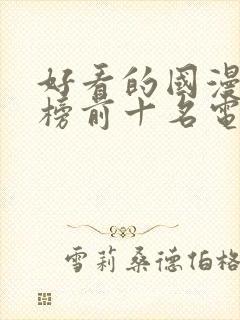 好看的國漫
榜前十名電
雪莉桑德伯格